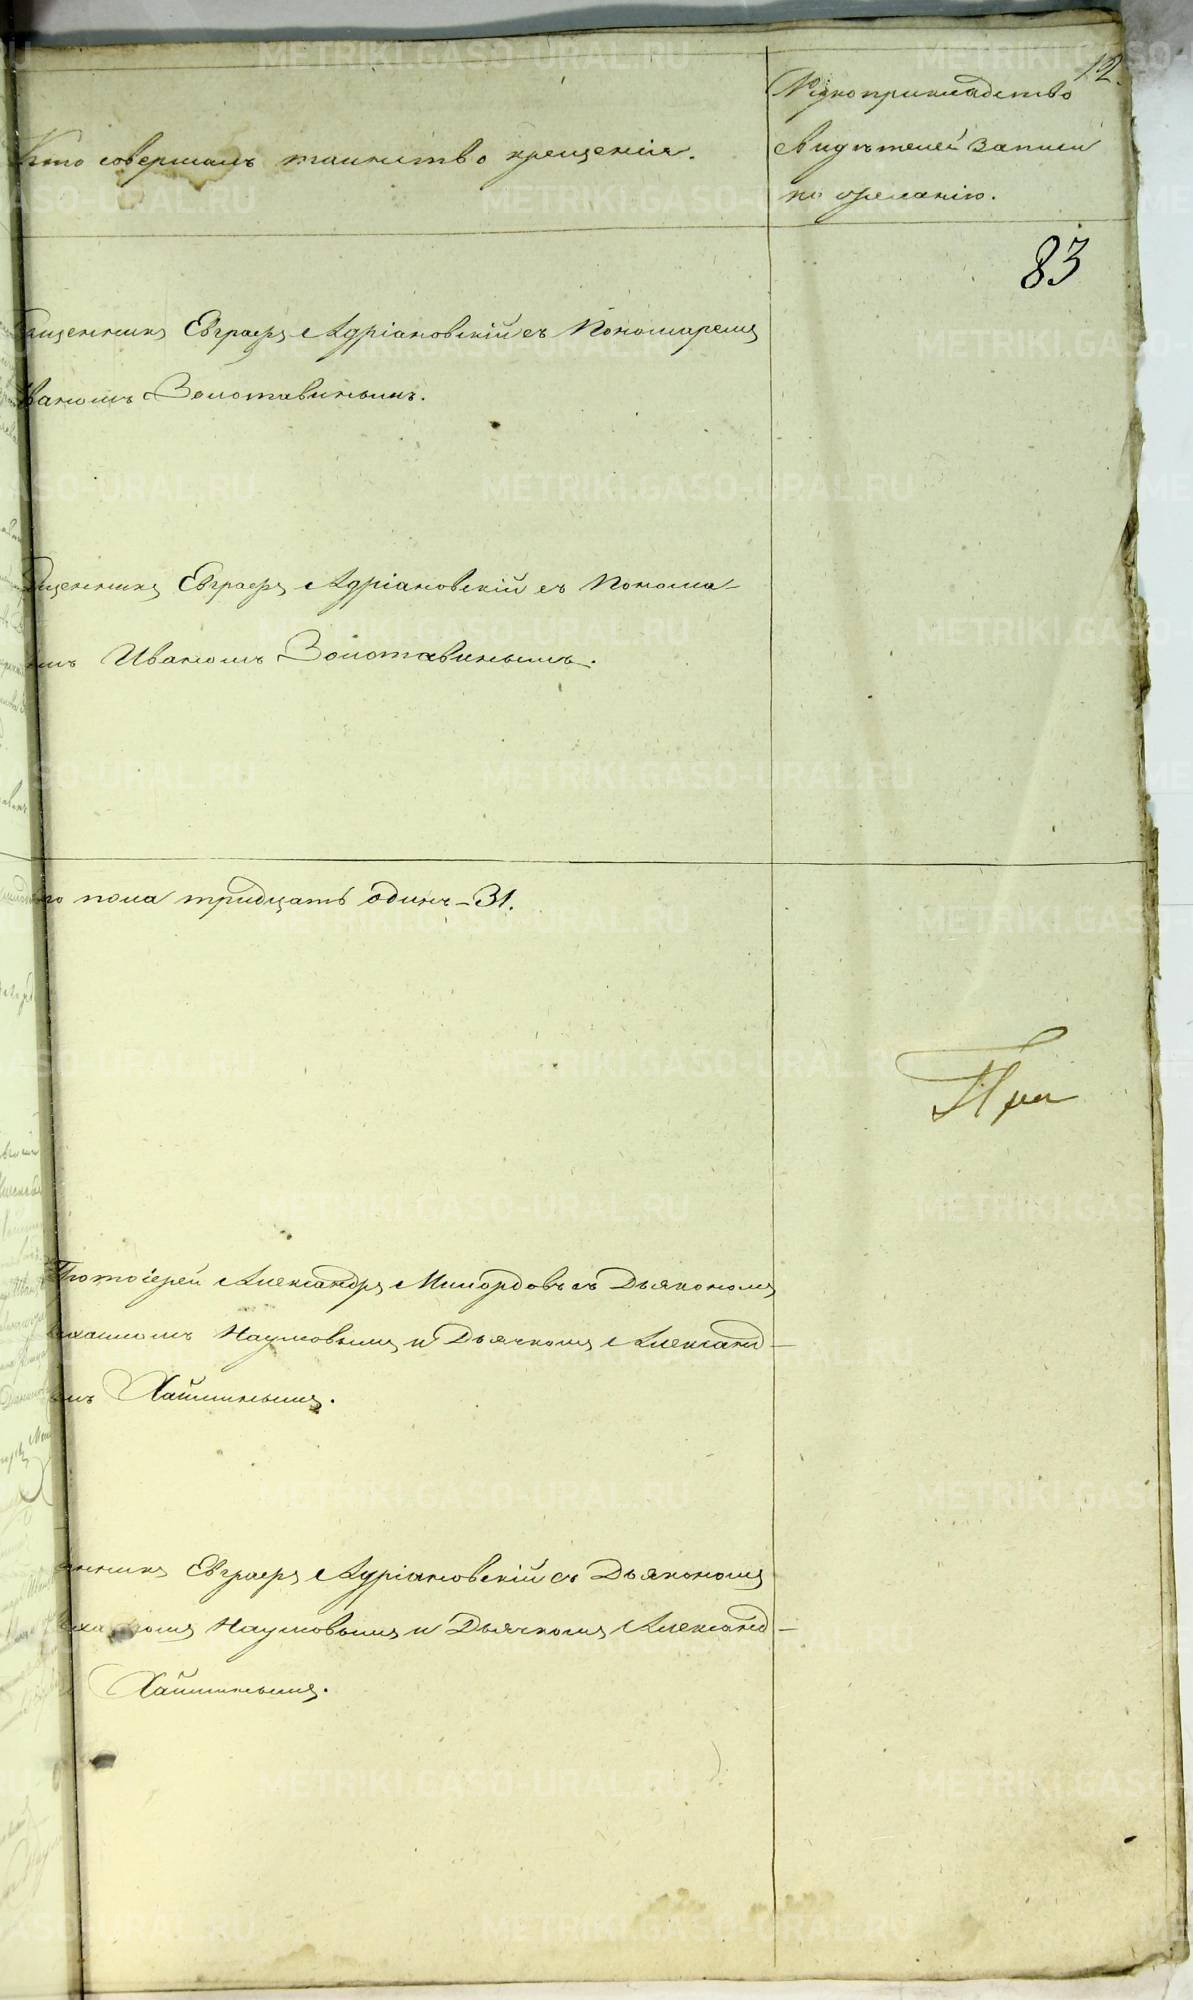 12.
Кто совершалъ таинство крещенія.
Рукоприкладство
свидѣтелей записи
по желанію.
83
Священникъ Евграфъ Адріановскій съ Пономаремъ
Иваномъ Золотавинымъ.
Священникъ Евграфъ Адріановскій съ Понома-
ремъ Иваномъ Золотавинымъ.
пола тридцать одинъ - 31.
При
Протоіерей Александръ Милордовъ съ Дьякономъ
Михаиломъ Наумовымъ и Дьячкомъ Александ-
Хайминымъ.
Евграфъ Адріановскій съ Дьякономъ
Наумовымъ и Дьячкомъ Александ-
Хайминымъ.
METRIKI.GASO-URAL.RU